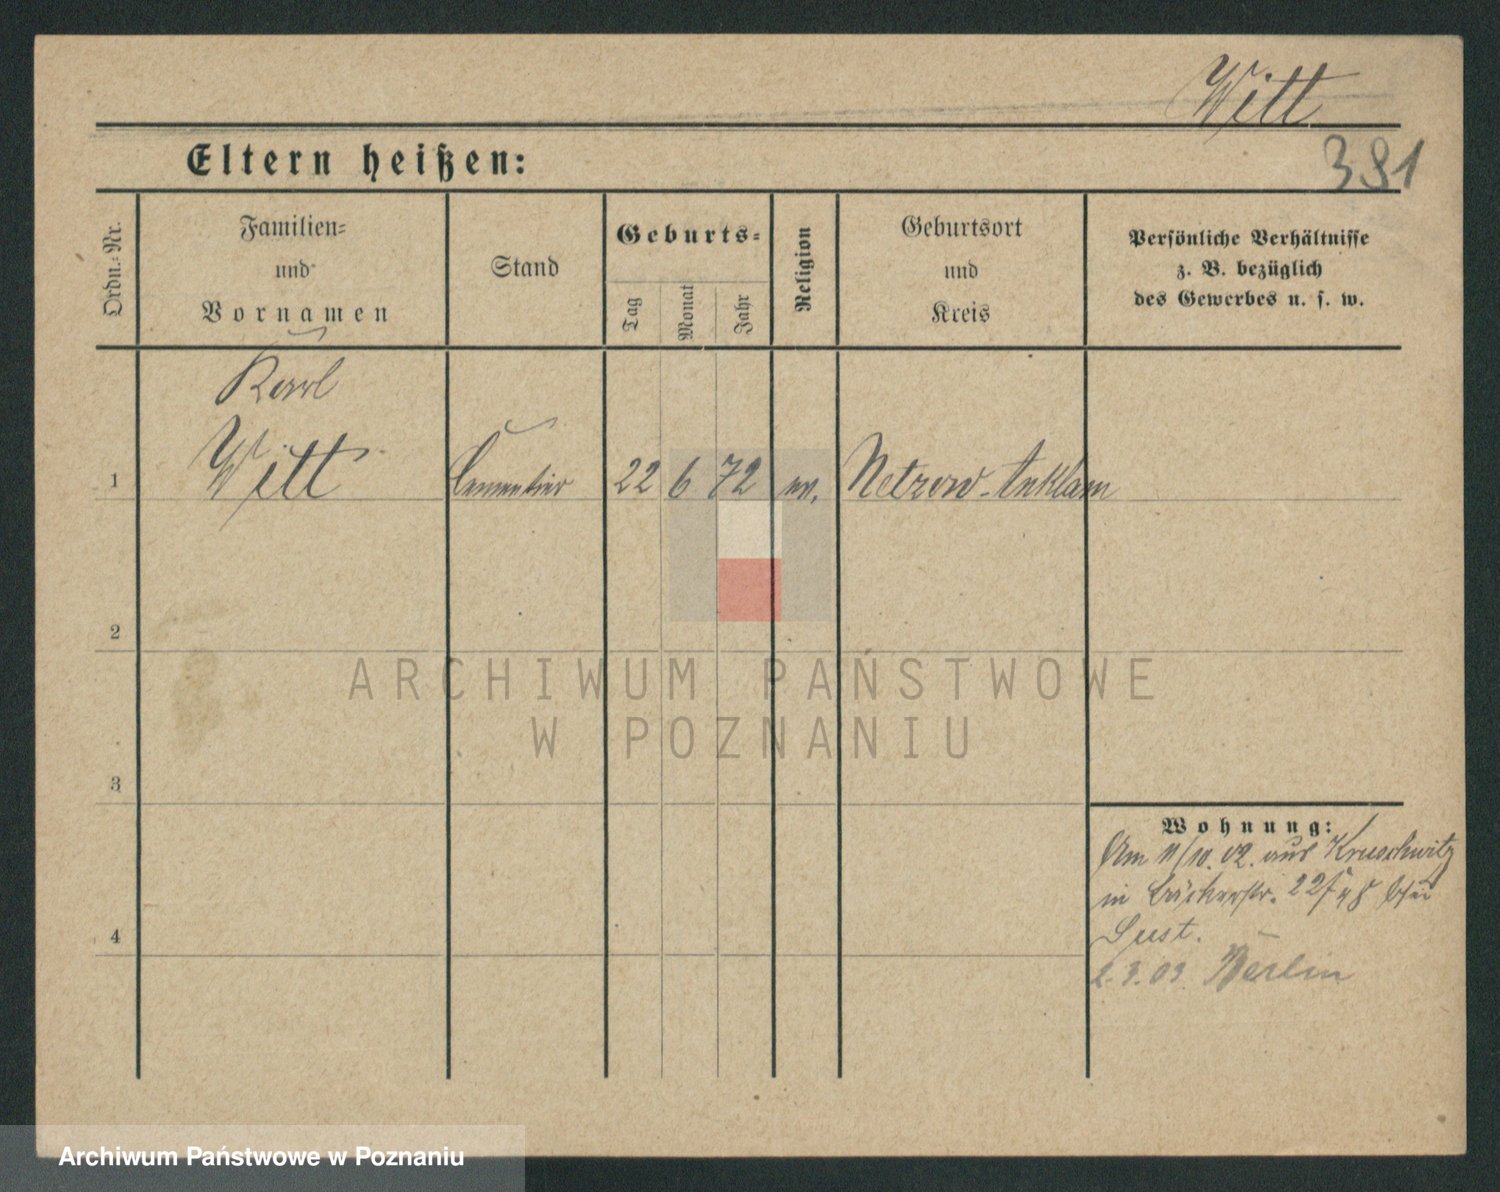 Witt
381
Eltern heißen:
Ordn.-Nr.
Familien-
und
Vornamen
Stand
Geburts-
Tag
Monat
Jahr
Religion
Geburtsort
und
Kreis
Persönliche Verhältnisse
z. B. bezüglich
des Gewerbes u. s. w.
Karl
1 Witt Cementier 22 6 72 ev. Netzow-Anklam
2
ARCHIWUM PAŃSTWOWE
W POZNANIU
3
Wohnung:
Am 11/10. 02. aus Kruschwitz
in Bäckerstr. bei
Gust.
4
2.3.03 Berlin
Archiwum Państwowe w Poznaniu